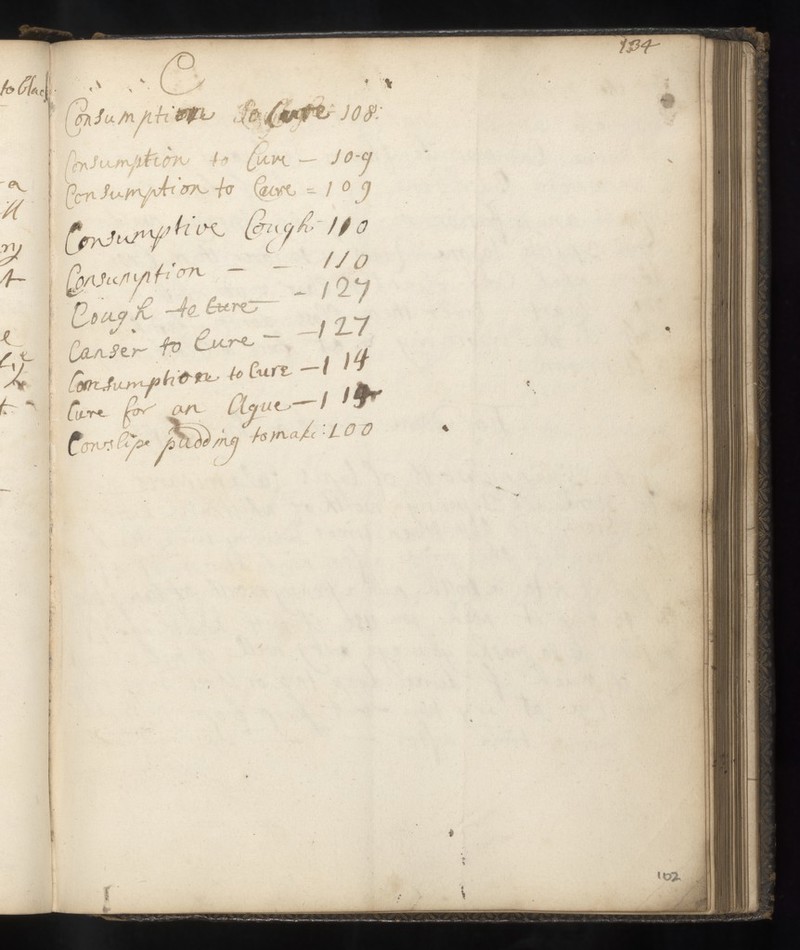 134
to black
C
Consumption to Cure 108:
a
Consumption to Cure - 109
ill
Consumption to Cure = 109
Consumptive Cough - 110
ny
Consumption - - 110
Cough to Cure - 127
Canser to Cure - 127
e
Consumption to Cure - 114
Cure for an Ague - 1
t.
Conslipe pudding to make: 100
102